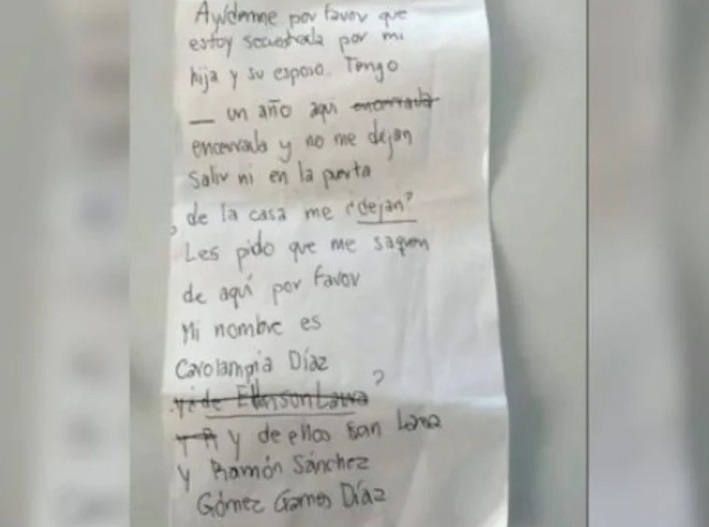 Ayúdenme por favor que
estoy secuestrada por mi
hija y su esposo. Tengo
— un año aqui encerrada
encerrada y no me dejan
salir ni en la puerta
, de la casa me (dejan?
Les pido que me saquen
de aquí por favor
Mi nombre es
Carolampia Díaz
?
y de ellos son
y Ramón Sánchez
Gómez Gomes Díaz